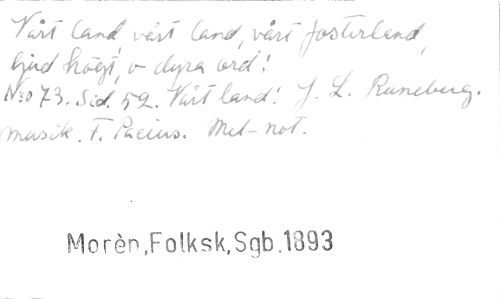 Vårt land vårt land, vårt fosterland,
ljud högt, o dyra ord!
No 73. Sid. 52. Vårt land! J. L. Runeberg.
musik. F. Pacius. Mel-not.
Morèn,Folksk,Sgb.1893